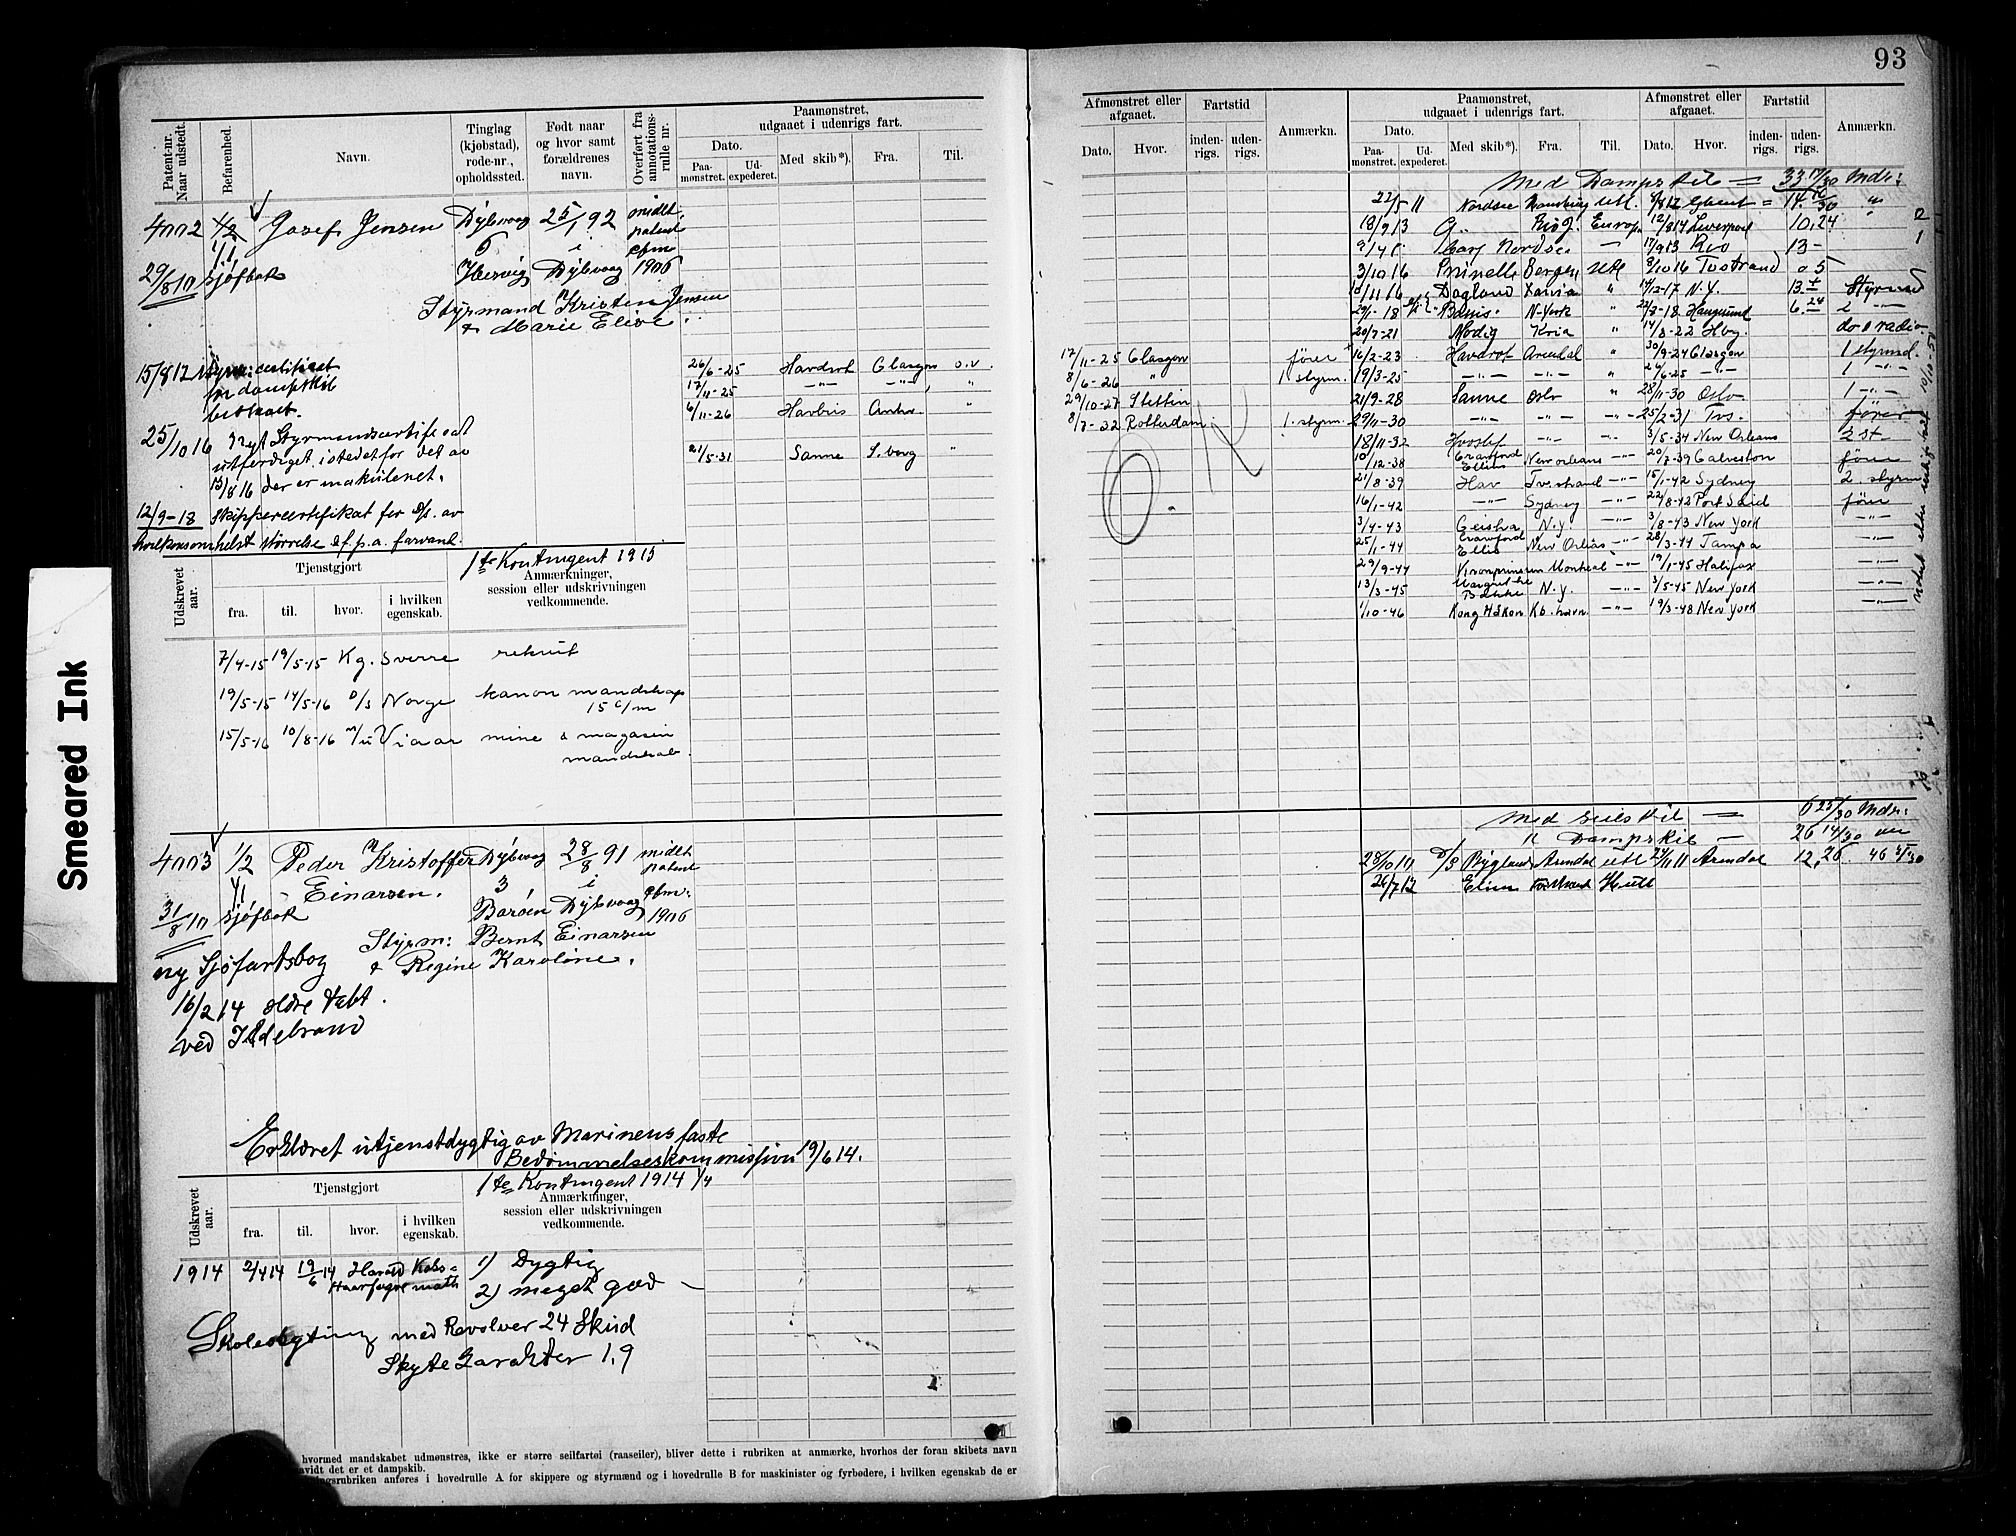 93
Smeared Ink
Patent-nr. Naar udstedt.
Befarenhed.
Navn.
Tinglag (kjøbstad), rode-nr., opholdssted.
Født naar og hvor samt forældrenes navn.
Overført fra annotations-rulle nr.
Paamønstret, udgaaet i udenrigs fart.
Dato.
Paa-mønstret.
Ud-expederet.
Med skib*).
Fra.
Til.
4002 1/2 Josef Jensen Dybvaag 25/1 92 midl.
1/1 5 i patent
29/8 10 sjøfbok Hervig Dybvaag 1906
Styrmand Kristen Jensen
& Marie Elise.
15/8 12 Styrm: certifikat
for dampskib
beskaaet.
25/10 16 Nyt Styrmandscertifikat
utferdiget istedetfor det av
15/8 16 der er makulenet.
12/9-18 Skippercertifikat for D/s. av
hvilkensomhelst størrelse i f.p.a. farvand.
26/6-25 Havdrot Glasgow o.v.
17/11-25 -"- -"- "
6/11-26 Havbris Antw. "
21/5-31 Sanne S.borg "
1ste Kontingent 1915
Udskrevet aar.
Tjenstgjort
fra.
til.
hvor.
i hvilken egenskab.
Anmærkninger, session eller udskrivningen vedkommende.
7/4-15 19/5-15 Kg. Sverre rekrut
19/5-15 14/5-16 D/s Norge kanon mandskap
15 c/m
15/5-16 10/8-16 m/u Vidar mine & magasin
mandskab.
4003 1/2 Peder Kristoffer Dybvaag 28/8 91 midl.
1/1 Einarsen. 3 i patent
31/8 10 sjøfbok Barøen Dybvaag 1906
Styrm: Bernt Einarsen
& Regine Karoline.
ny Sjøfartsbog
16/2 14 ældre tabt
ved Ildebrand
Erklæret utjenstdygtig av Marinens faste
Bedømmelseskommission 19/6 14.
1ste Kontingent 1914 1/4
Udskrevet aar.
Tjenstgjort
fra.
til.
hvor.
i hvilken egenskab.
Anmærkninger, session eller udskrivningen vedkommende.
1914 2/4 14 19/6 14 Harald Haarfagre Kabs= math
1) Dygtig
2) meget god
Skoleskytning med Revolver 24 Skud
Skytekarakter 1,9
hvormed mandskabet udmønstres, ikke er større seilfartøi (raaseiler), bliver dette i rubriken at anmærke, hvorhos der foran skibets navn
vidt det er et dampskib.
ingsrubriken anføres i hovedrulle A for skippere og styrmænd og i hovedrulle B for maskinister og fyrbødere, i hvilken egenskab de er
Afmønstret eller afgaaet.
Dato.
Hvor.
Fartstid
inden-rigs.
uden-rigs.
Anmærkn.
Paamønstret, udgaaet i udenrigs fart.
Dato.
Paa-mønstret.
Ud-expederet.
Med skib*).
Fra.
Til.
Afmønstret eller afgaaet.
Dato.
Hvor.
Fartstid
inden-rigs.
uden-rigs.
Anmærkn.
Med Dampskib = 33 17/30 Mdr:
22/5 11 Nordsee Hamburg utl.
18/9 13 Europ. 12/8 14 Liverpool 10,24
Nordsee 17/9 13 Rio 13 -
3/10 16 Prinells Bergen utl 8/10 16 Tvstrand
10/11 16 Dagland Xania " 14/12-17 N.Y. Styrmd
29/1-18 N-York " 22/7-18 Haugesund 6.24 2 -"-
20/7-21 Modig Kria " 14/3-22 Hbg. do & radio
17/11-25 Glasgow fører 16/2-23 Havdrot Arendal " 30/9-24 Glasgow 1 styrmd.
8/6-26 " 1 styrm. 19/3-25 -"- -"- " 26/6-25 -"- 1 -"-
29/10-27 Stettin 21/9-28 Sanne Oslo " 28/11-30 Oslo 1 -"-
8/7-32 Rotterdam 1. styrm. 29/11-30 -"- -"- 25/2-31 Tvs. fører
18/11-32 -"- 3/5-34 New Orleans 2 st.
10/12-38 Crawford Ellis New Orleans -"- 20/7-39 Galveston fører
21/8-39 Hav Tvestrand -"- 15/1-42 Sydney 2. styrm
16/1-42 -"- Sydney -"- 22/8-42 Port Said fører
3/4-43 Geisha N.Y. -"- 3/8-43 New York -"-
25/1-44 Crawford Ellis New Orleans -"- 28/3-44 Tampa -"-
29/9-44 Kronprinsen Montreal -"- 19/1-45 Halifax -"-
13/3-45 Margrethe Bakke N.Y. -"- 3/5-45 New York -"-
1/10-46 Kong Håkon Kb.havn. -"- 19/3-48 New York -"-
OK
Med seilskib = 6 25/30 Mdr:
" Dampskib - 26 14/30
28/10 10 D/S Bygland Arendal utl 24/11 11 Arendal 12,26.
26/7 12 Elin